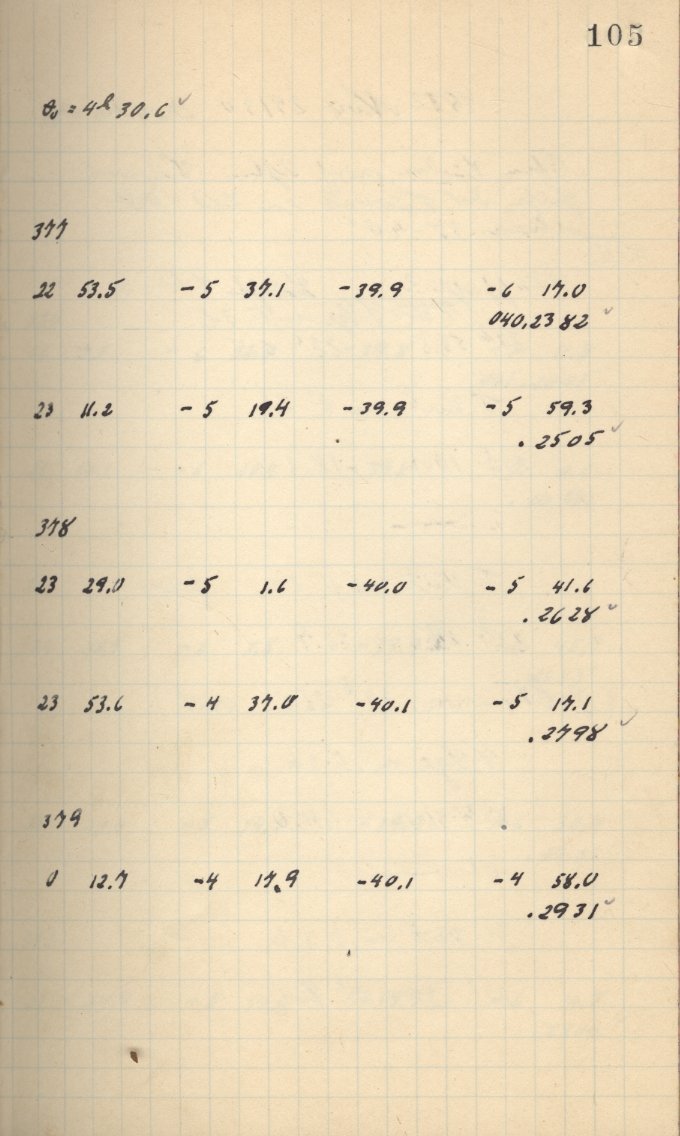 105
θ₀ = 4ʰ 30.6 ✓
377
22 53.5 -5 37.1 -39.9 -6 17.0
040.2382 ✓
23 11.2 -5 19.4 -39.9 -5 59.3
.2505 ✓
378
23 29.0 -5 1.6 -40.0 -5 41.6
.2628 ✓
23 53.6 -4 37.0 -40.1 -5 17.1
.2798 ✓
379
0 12.7 -4 17.9 -40.1 -4 58.0
.2931 ✓